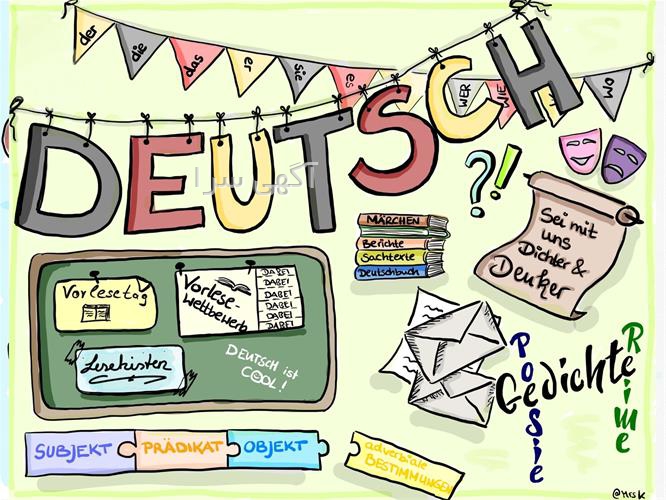 der die das er sie es WER WIE WO
DEUTSCH
آگهی سرا
MÄRCHEN
Berichte
Sachtexte
Deutschbuch
Sei mit
uns
Dichter &
Denker
Vorlesetag
Vorlese-
wettbewerb
DABEI
DABEI
DABEI
DABEI
DABEI
DABEI
Lesekisten
DEUTSCH ist
COOL!
?!
POeSie
Gedichte
Reime
SUBJEKT PRÄDIKAT OBJEKT
adverbiale
BESTIMMUNGEN